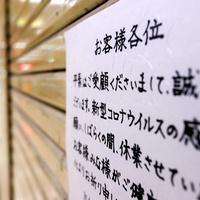 お客様各位
平素はご愛顧くださいまして、誠
新型コロナウイルスの感
しばらくの間、休業させてい
お客様みな様がご健
お祈り申し